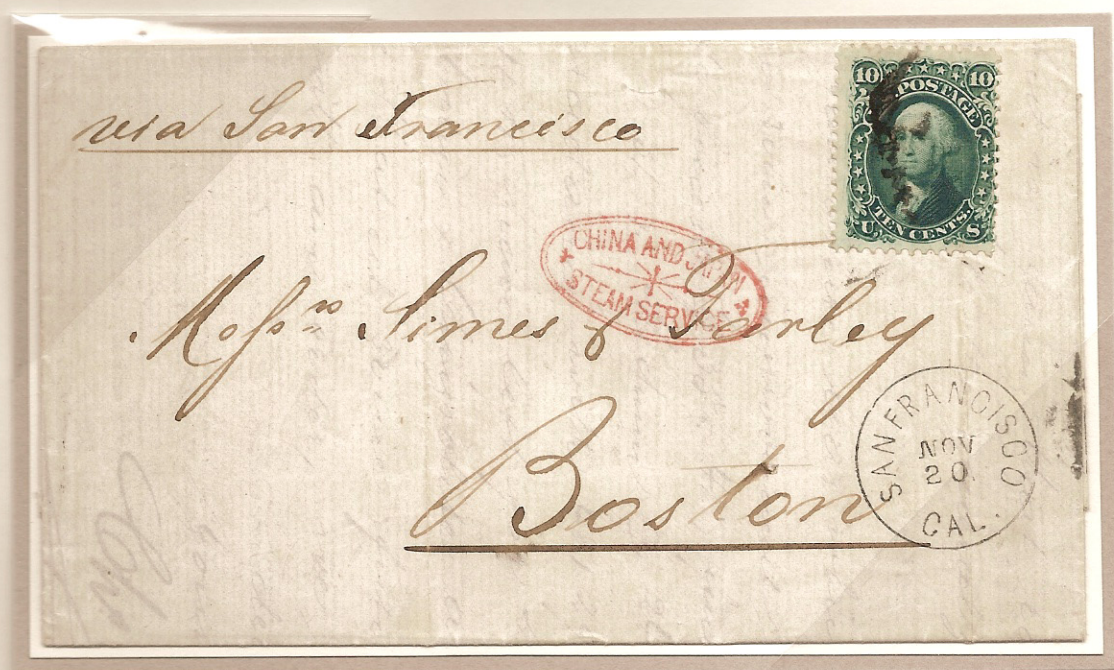 via San Francisco
10 10
POSTAGE
TEN CENTS.
U. S.
CHINA AND JAPAN
STEAM SERVICE
Messrs Simes & Turley
Boston
SAN FRANCISCO
NOV
20.
CAL.